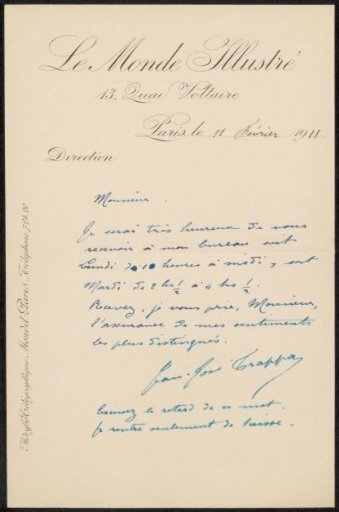 Le Monde Illustré
13, Quai Voltaire
Paris, le 11 Février 1911
Direction
Monsieur
Je serai très heureux de vous
recevoir à mon bureau soit
Lundi de 10 heures à midi, soit
Mardi de 2 hs ½ à 4 hs ½.
Recevez, je vous prie, Monsieur,
l'assurance de mes sentiments
les plus distingués.
Jean-José Frappa
Excusez le retard de ce mot.
Je rentre seulement de Suisse.
Adresse Télégraphique: Mondil Paris. Téléphone